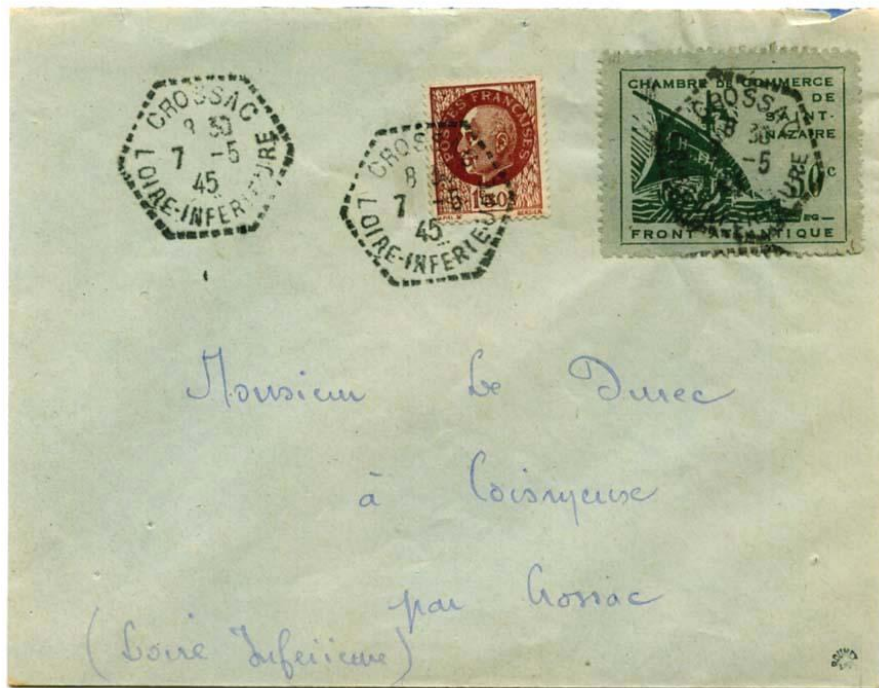 CROSSAC
8 30
7 -5
45
LOIRE-INFERIEURE
POSTES FRANÇAISES
1F50
CROSSAC
8
7 -5
45
LOIRE-INFERIEURE
CHAMBRE DE COMMERCE
DE
SAINT-
NAZAIRE
50c
FRONT ATLANTIQUE
CROSSAC
8 30
-5
Monsieur Le Durec
à
par Crossac
(Loire Inférieure)